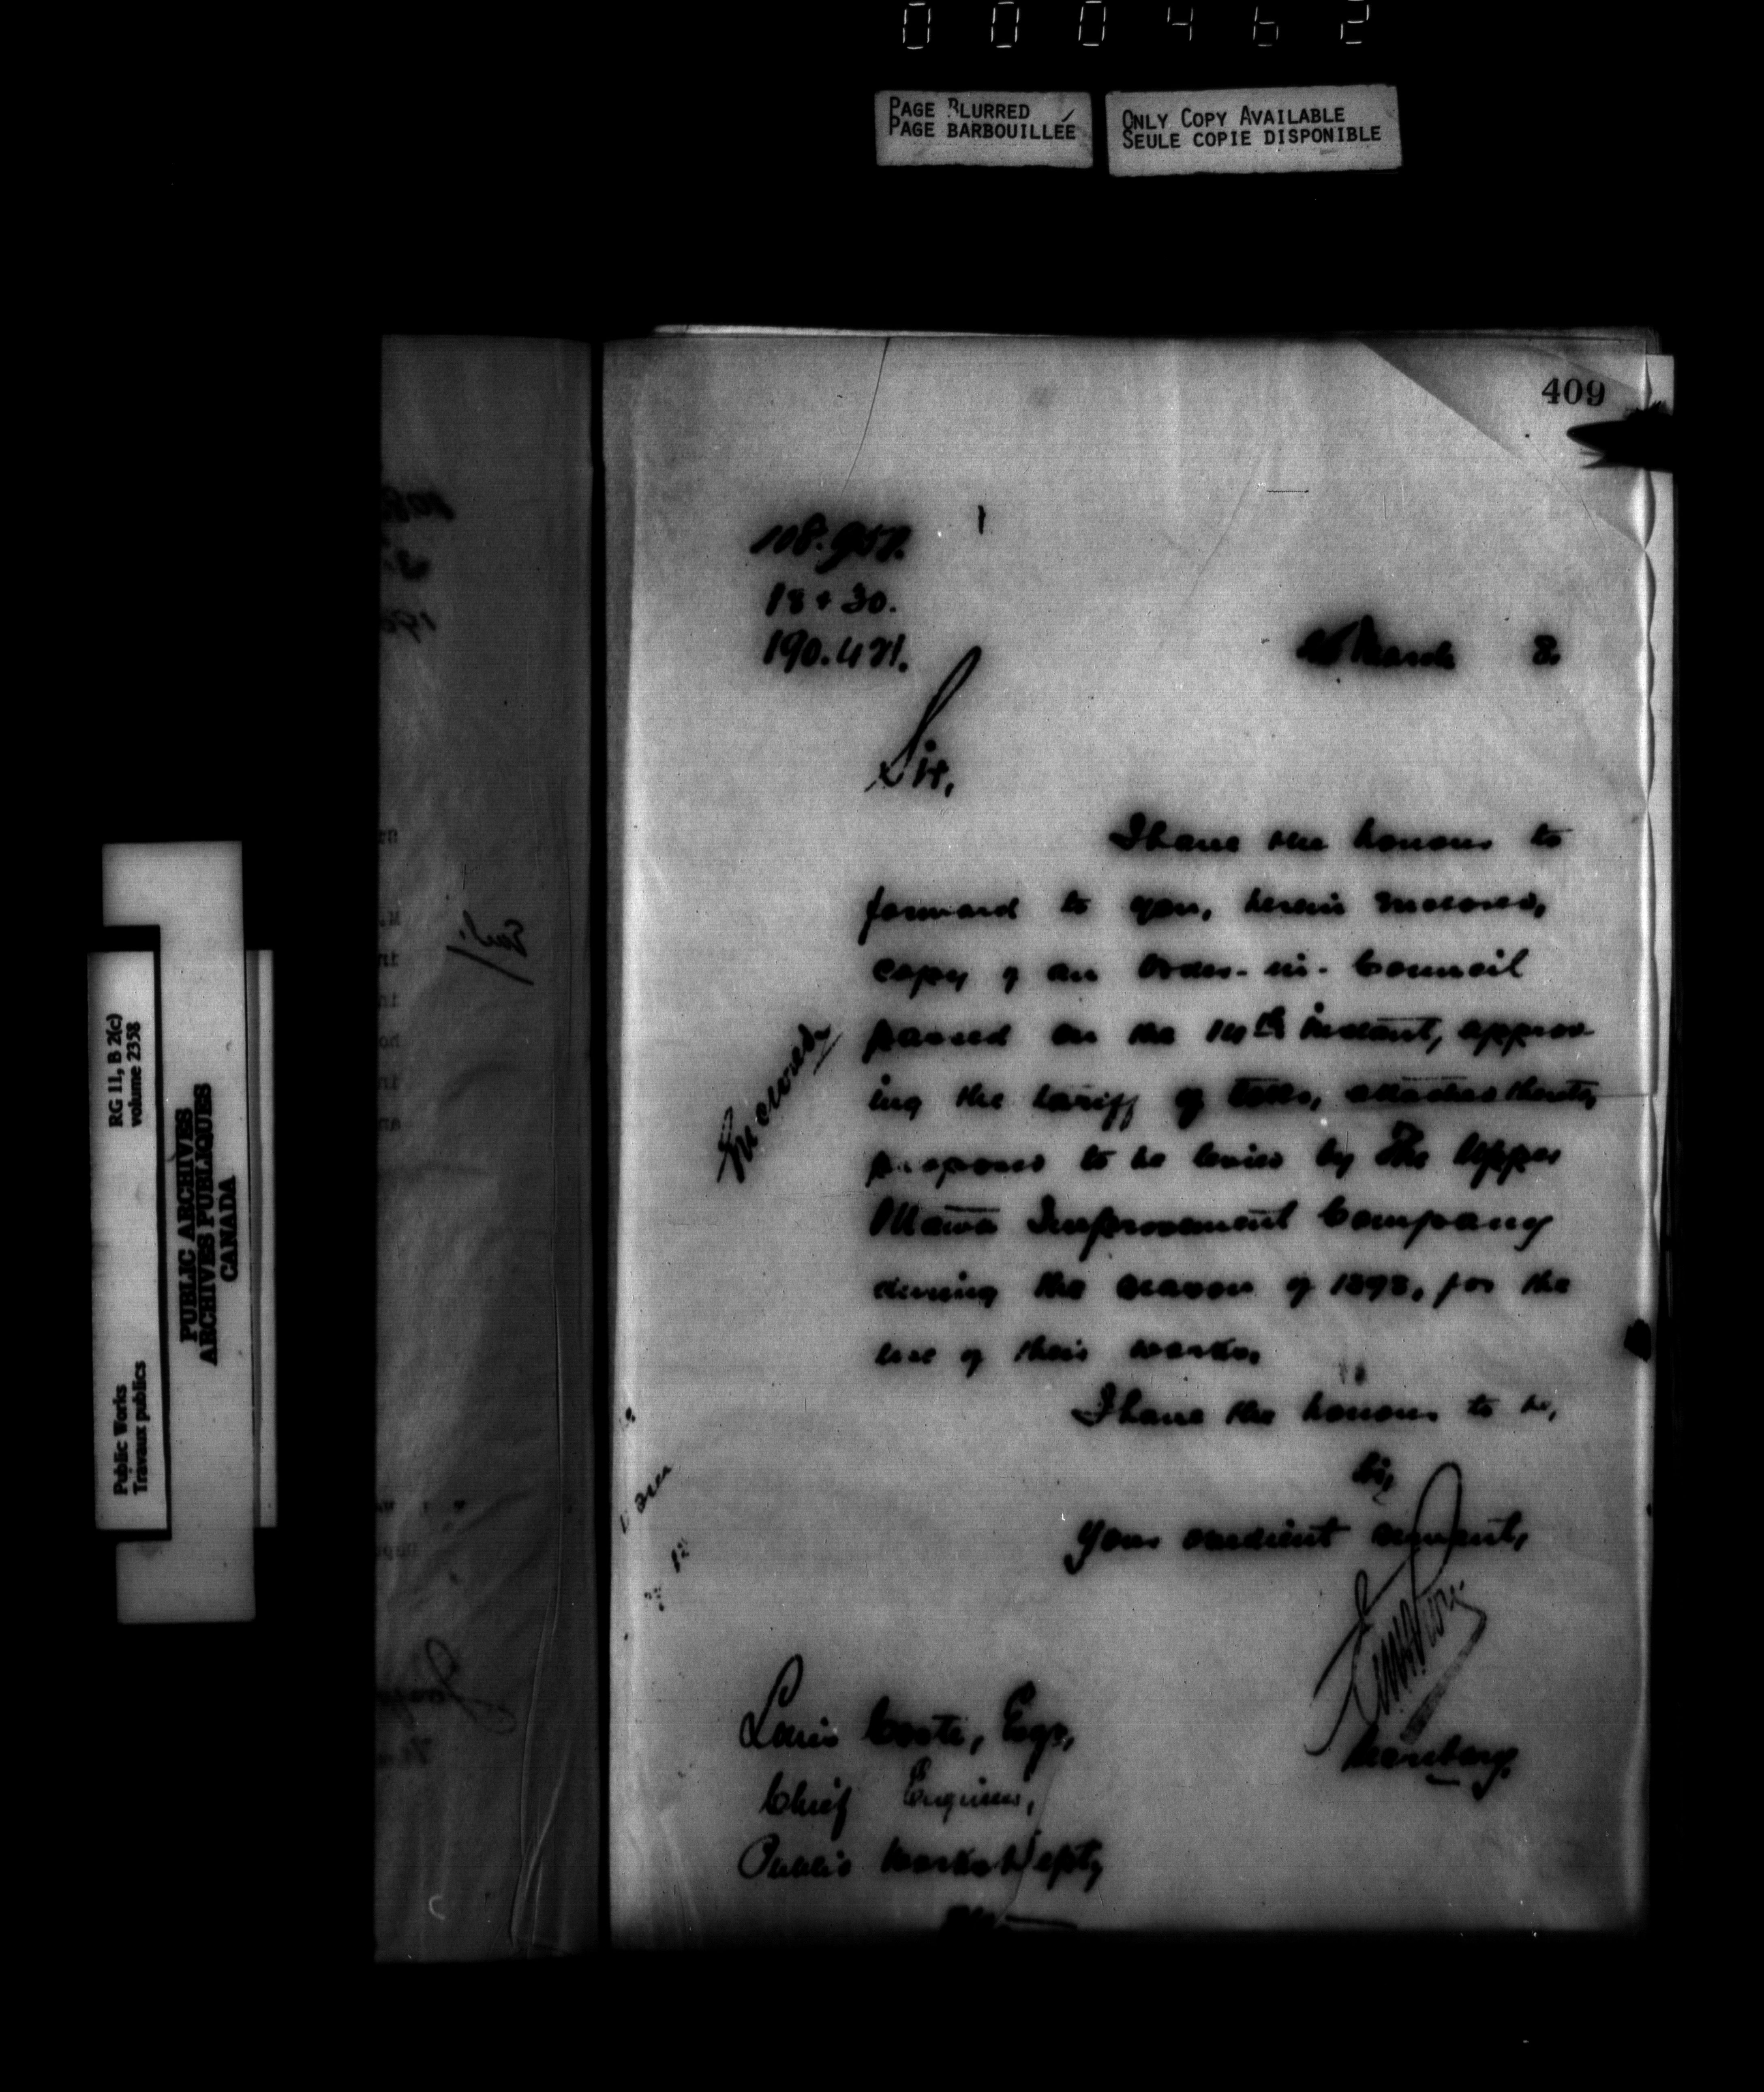 000462
PAGE BLURRED
PAGE BARBOUILLÉE
ONLY COPY AVAILABLE
SEULE COPIE DISPONIBLE
409
108.957.
18+30.
190.421.
March 8.
Sir,
I have the honour to
forward to you, herein enclosed,
copy of an Order-in-Council
passed on the 14th instant, approv-
ing the tariff of tolls, attached thereto,
proposed to be levied by The Upper
Ottawa Improvement Company
during the season of 1898, for the
use of their works.
Enclosed
I have the honour to be,
Sir,
Your obedient servant,
Secretary.
Louis Coste, Esqr,
Chief Engineer,
Public Works Dept,
RG 11, B 2(c)
volume 2358
Public Works
Travaux publics
PUBLIC ARCHIVES
ARCHIVES PUBLIQUES
CANADA